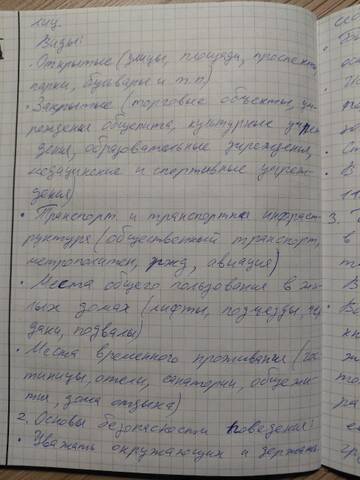 лиц.
Виды:
· Открытые (улицы, площади, проспекты,
парки, бульвары и т.п)
· Закрытые (торговые объекты, уч
реждения общепита, культурные учреж
дения, образовательные учреждения,
медицинские и спортивные учреж-
дения)
· Транспорт и транспортная инфраст
руктура (общественный транспорт,
метрополитен, ржд, авиация)
· Места общего пользования в жи
лых домах (лифты, подъезды, че
даки, подвалы)
· Места временного проживания (гос
тиницы, отели, санатории, общежи-
тия, дома отдыха)
2. Основы безопасности поведения:
· Уважать окружающих и держать